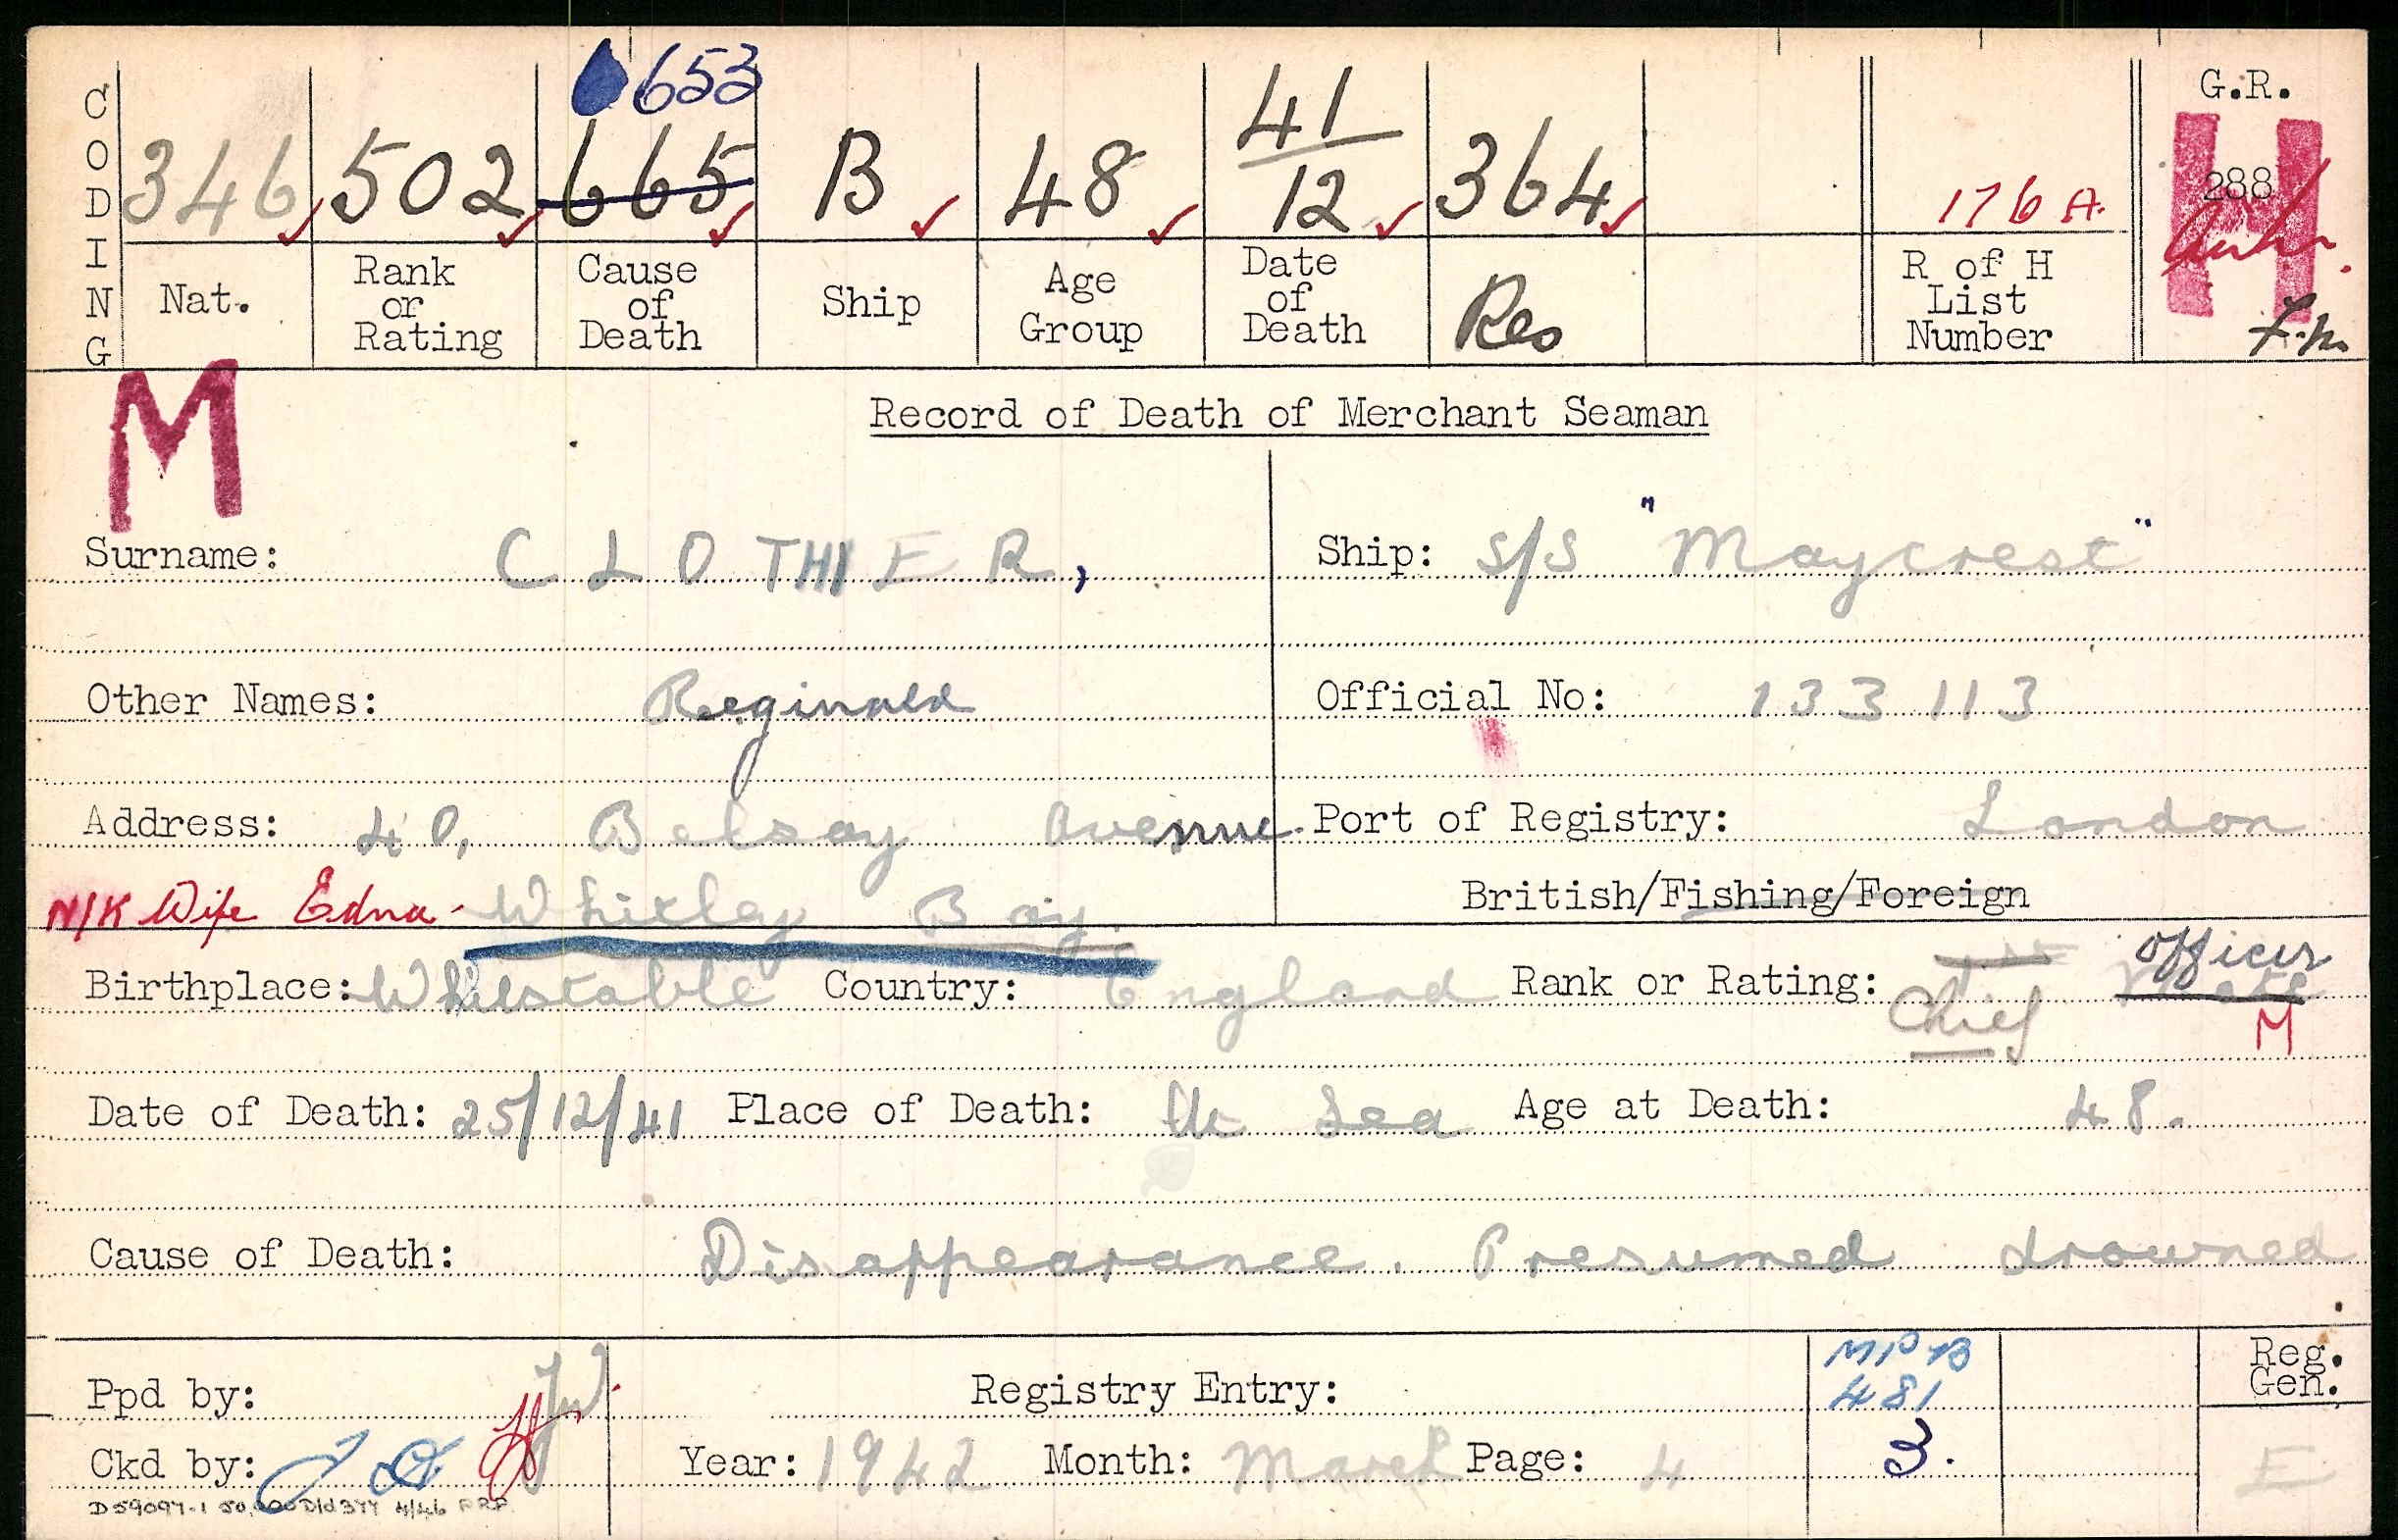 CODING
653
346 502 665 B 48 41/12 364 176 A.
G.R.
H
288
Nat. Rank or Rating Cause of Death Ship Age Group Date of Death Res R of H List Number
M
Record of Death of Merchant Seaman
Surname: CLOTHIER, Ship: S/S "Maycrest"
Other Names: Reginald Official No: 133113
Address: 40, Belsay Avenue. Port of Registry: London
N/K Wife Edna. Whitley Bay. British/Fishing/Foreign
Birthplace: Whitstable Country: England Rank or Rating: 1st Mate Chief Officer
M
Date of Death: 25/12/41 Place of Death: At Sea Age at Death: 48.
Cause of Death: Disappearance. Presumed drowned.
Ppd by: Registry Entry: MPB 481 Reg. Gen.
Ckd by: Year: 1942 Month: March Page: 4 3. E